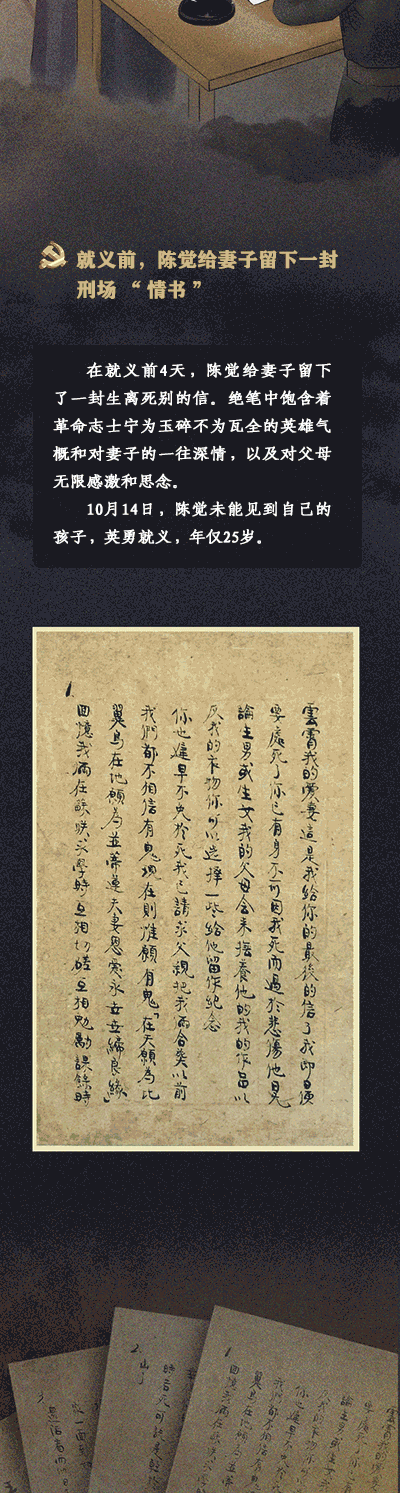 就义前，陈觉给妻子留下一封
刑场 “情书”
在就义前4天，陈觉给妻子留下
了一封生离死别的信。绝笔中饱含着
革命志士宁为玉碎不为瓦全的英雄气
概和对妻子的一往深情，以及对父母
无限感激和思念。
10月14日，陈觉未能见到自己的
孩子，英勇就义，年仅25岁。
1.
雲霄我的愛妻這是我給你的最後的信了我即日便
要處死了你已有身不可因我死而過於悲傷他日無
論生男或生女我的父母会来撫養他的我的作品以
及我的衣物你可以选擇一些給他留作紀念
你也遲早不免於死我已請求父親把我俩合葬以前
我們都不相信有鬼現在則惟願有鬼「在天願為比
翼鳥在地願為並蒂蓮夫妻恩愛永世世締良緣」
回憶我俩在蘇求學時互相切磋互相勉勵課餘時